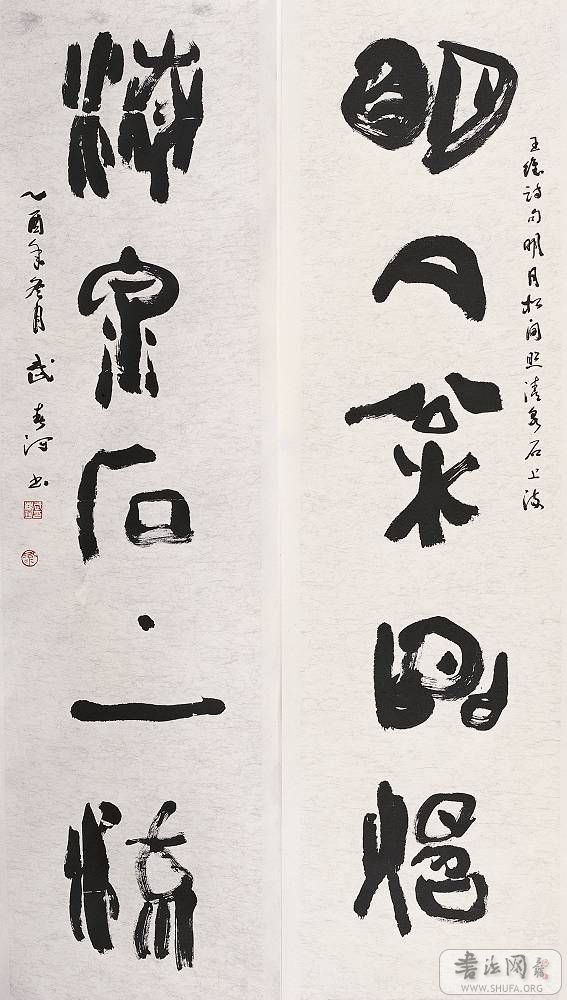 明月松間照
王維詩句明月松間照清泉石上流
清泉石上流
乙酉年冬月武春河書
書法网
WWW.SHUFA.ORG